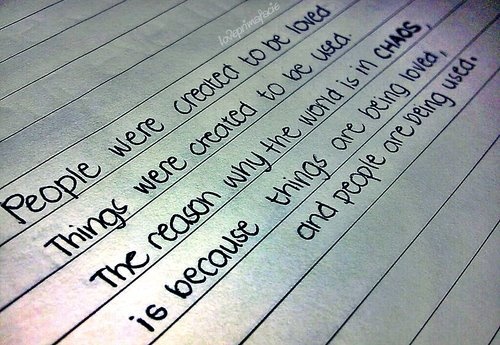 lo2eprimafacie
People were created to be loved
Things were created to be used.
The reason why the world is in CHAOS,
is because things are being loved,
and people are being used.